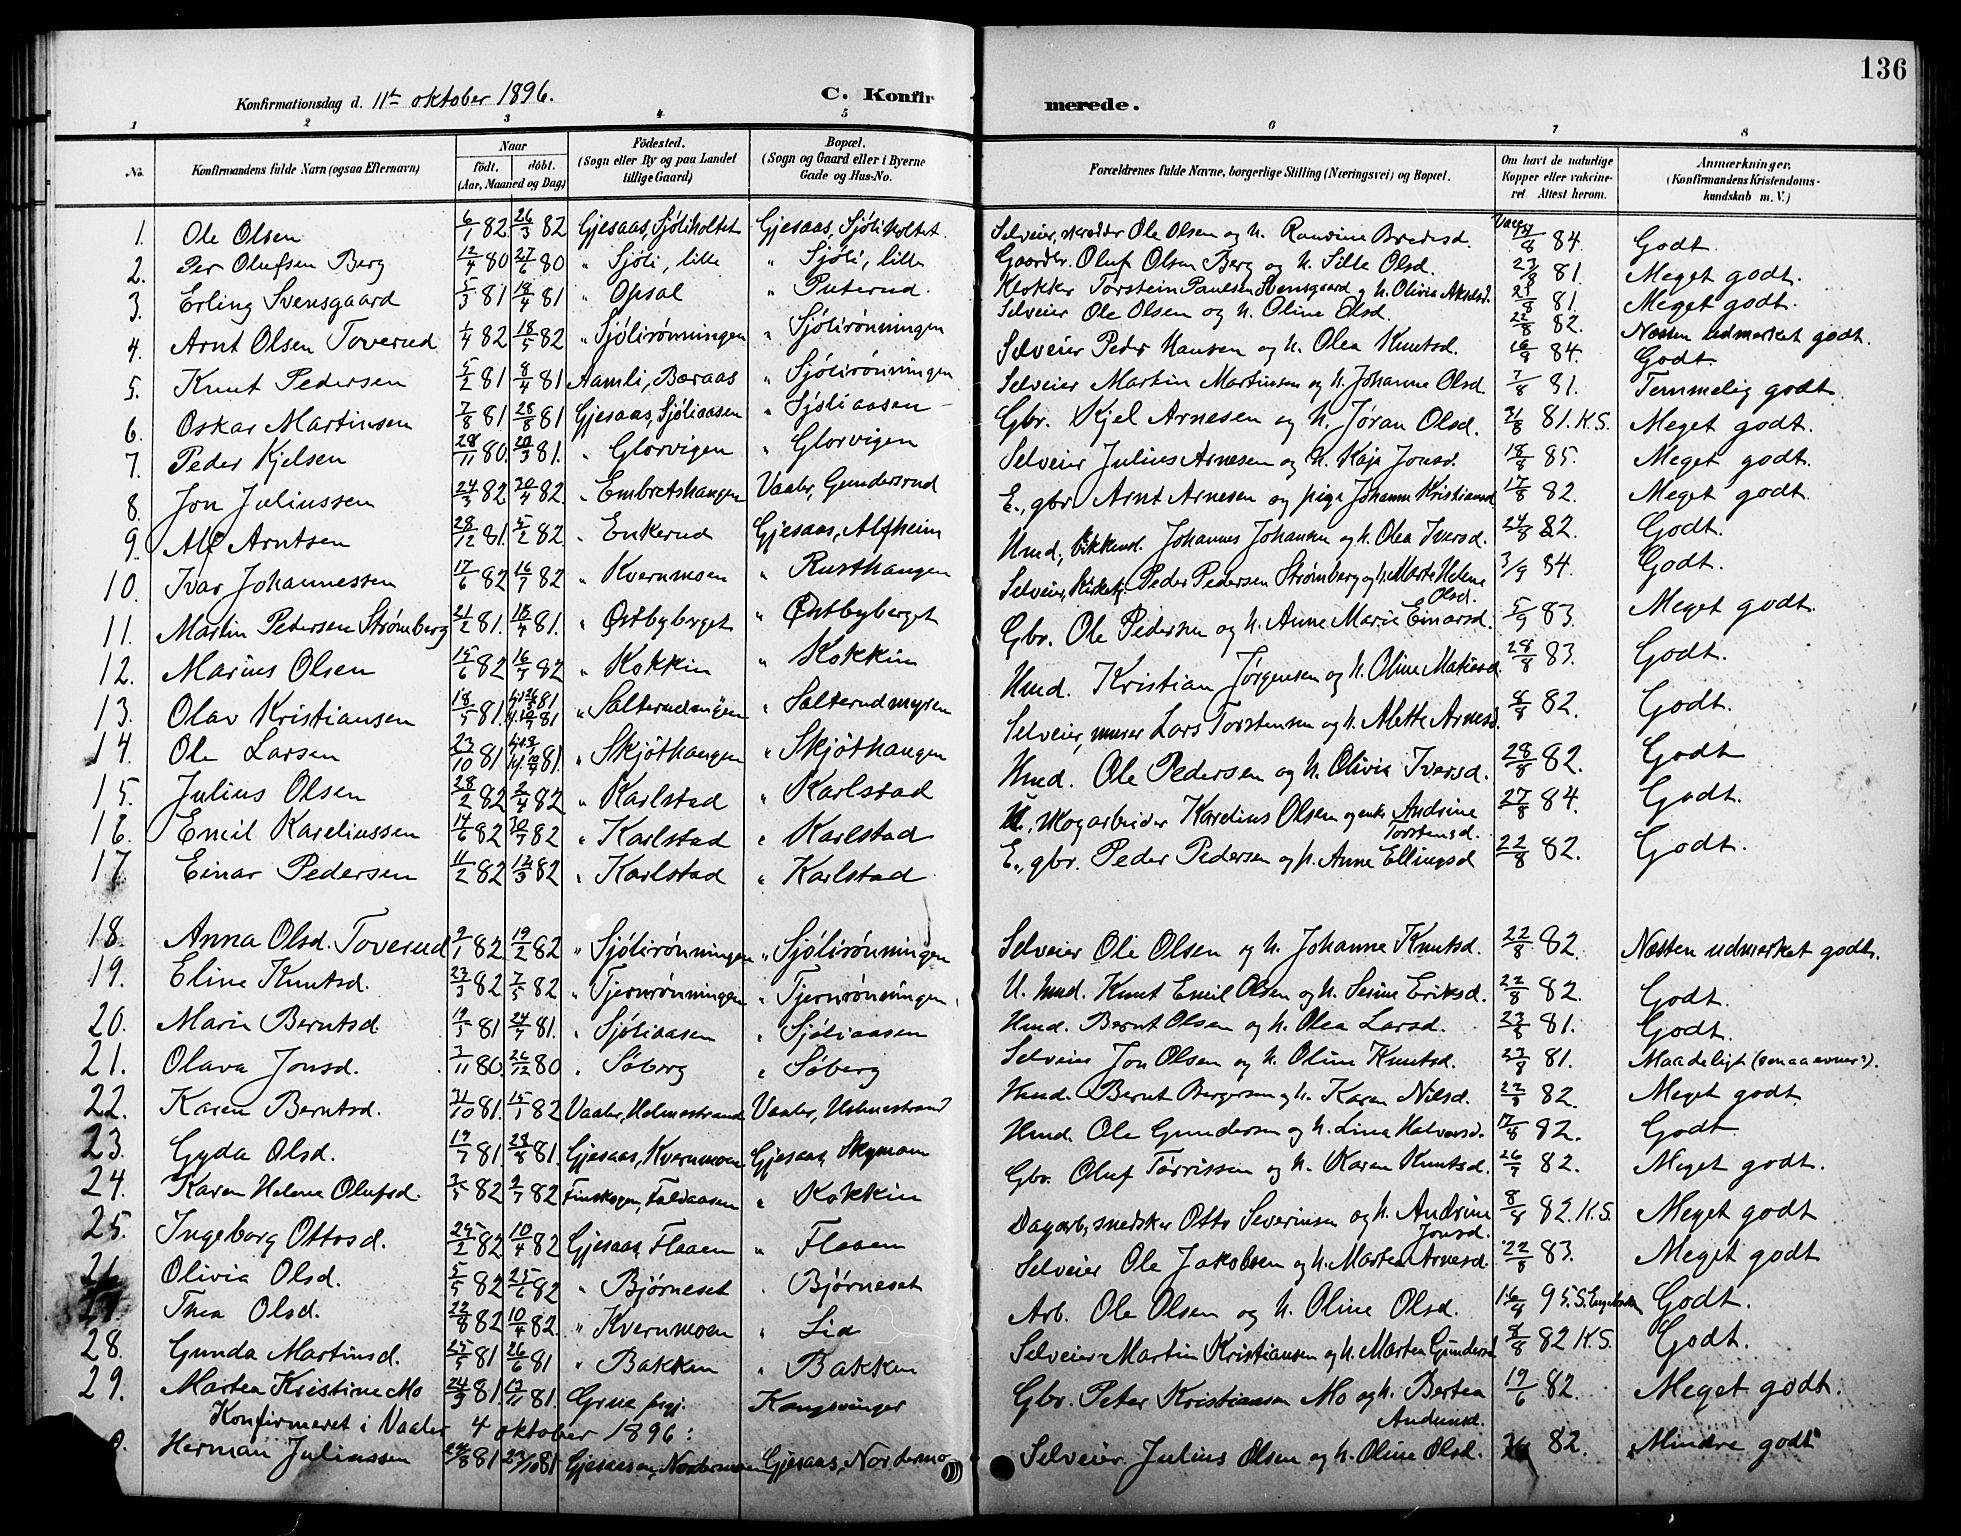 136
Konfirmationsdag d. 11te oktober 1896.
C. Konfirmerede.
1 2 3 4 5 6 7 8
No.
Konfirmandens fulde Navn (ogsaa Efternavn)
Naar
født. døbt.
(Aar, Maaned og Dag)
Fødested.
(Sogn eller By og paa Landet
tillige Gaard)
Bopæl.
(Sogn og Gaard eller i Byerne
Gade og Hus-No.
Forældrenes fulde Navne, borgerlige Stilling (Næringsvei) og Bopæl.
Om havt de naturlige
Kopper eller vakcine-
ret. Attest herom.
Anmærkninger.
(Konfirmandens Kristendoms-
kundskab m. V.)
1. Ole Olsen 6/1 82 26/3 82 Gjesaas, Sjöliholtet Gjesaas, Sjöliholtet. Selveier, skrædder Ole Olsen og h. Randine Bredesd. 84. Godt.
2. Per Olufsen Berg 12/4 80 27/6 80 " Sjöli, lille " Sjöli, lille Gaardbr. Oluf Olsen Berg og h. Sille Olsd. 23/8 81. Meget godt.
3. Erling Svensgaard 5/3 81 18/4 81 " Opsal " Puterud. Klokker Torstein Paulsen Svensgaard og h. Olivia Akselsd. 81. Meget godt.
4. Arnt Olsen Toverud 1/4 82 18/5 82 " Sjölirönningen " Sjölirönningen Selveier Ole Olsen og h. Oline Elsd. 22/8 82. Næsten udmerket godt.
5. Knut Pedersen 5/2 81 8/4 81 Aamli, Baraas " Sjölirönningen Selveier Peder Hansen og h. Olea Knutsd. 16/9 84. Godt.
6. Oskar Martinsen 7/8 81 28/8 81 Gjesaas, Sjöliaasen " Sjöliaasen Selveier Martin Martinsen og h. Johanne Olsd. 7/8 81. Temmelig godt.
7. Peder Kjelsen 28/11 80. 20/3 81. " Glorvigen " Glorvigen Gbr. Kjel Arnesen og h. Jøran Olsd. 31/8 81. K.S. Meget godt.
8. Jon Juliussen 24/3 82 30/4 82. " Embretshaugen Vaaler, Gundersrud Selveier Julius Arnesen og h. Kaja Jonsd. 18/8 85. Meget godt.
9. Alf Arntsen 28/12 81. 5/2 82. " Enkerud Gjesaas, Alfheim E., gbr. Arnt Arnesen og pige Johanne Kristiansd. 17/8 82. Meget godt.
10. Ivar Johannessen 17/6 82 16/7 82 " Kvernmoen " Rusthaugen Hmd., Johannes Johansen og h. Olea Iversd. 24/8 82. Godt.
11. Martin Pedersen Strømberg 21/2 81. 18/4 81. " Østbyberget " Østbyberget Selveier, Kirketj. Peder Pedersen Strømberg og h. Marte Helene Olsd. 3/9 84. Godt.
12. Marius Olsen 15/6 82 16/7 82 " Kokkin " Kokkin Gbr. Ole Pedersen og h. Anne Marie Einarsd. 5/9 83. Meget godt.
13. Olav Kristiansen 18/5 81 81 81 " Salterudmyren " Salterudmyren Hmd. Kristian Jørgensen og h. Oline Matiasd. 28/8 83. Godt.
14. Ole Larsen 23/10 81 81. " Skjöthaugen " Skjöthaugen Selveier, murer Lars Torstensen og h. Alette Arnesd. 8/8 82. Godt.
15. Julius Olsen 28/2 82 2/4 82 " Karlstad " Karlstad Hmd. Ole Pedersen og h. Olivia Iversd. 28/8 82. Godt
16. Emil Kareliussen 14/6 82 30/7 82 " Karlstad " Karlstad U., skogarbeider Karelius Olsen og enke Andrine Torstensd. 27/8 84. Godt.
17 Einar Pedersen 11/2 82 12/3 82 " Karlstad " Karlstad E., gbr. Peder Pedersen og h. Anne Ellingsd 22/8 82. Godt.
18. Anna Olsd. Toverud 9/1 82 19/2 82 " Sjölirönningen " Sjölirönningen Selveier Ole Olsen og h. Johanne Knutsd. 22/8 82. Næsten udmerket godt.
19. Eline Knutsd. 23/3 82 7/5 82 " Tjernrönningen " Tjernrönningen. U. hmd. Knut Emil Olsen og h. Serine Eriksd. 22/8 82. Godt.
20. Marie Berntsd. 19/5 81 24/7 81. " Sjöliaasen " Sjöliaasen Hmd. Bernt Olsen og h. Olea Larsd. 23/8 81. Godt.
21. Olava Jonsd. 7/11 80. 26/12 80 " Söberg " Söberg Selveier Jon Olsen og h. Oline Knutsd. 23/8 81. Maadeligt (smaa evner).
22. Karen Berntsd. 31/10 81. 15/1 82 Vaaler, Holmestrand Vaaler, Holmestrand Hmd. Bernt Bergersen og h. Karen Nilsd. 82. Meget godt.
23. Gyda Olsd. 19/7 81. 28/8 81. Gjesaas, Kvernmoen Gjesaas, Skymoen Hmd. Ole Gundersen og h. Lina Halvorsd. 17/8 82. Godt
24. Karen Helene Olufsd. 82 2/7 82 Finskogen, Faldaasen " Kokkin Gbr. Oluf Törrissen og h. Karen Knutsd. 82. Meget godt.
25. Ingeborg Ottosd. 25/2 82 10/4 82 Gjesaas, Flaaen " Flaaen Dagarb., snedker Otto Severinsen og h. Andrine Jonsd. 8/8 82. K.S. Meget godt
26 Olivia Olsd. 5/5 82 25/6 82 " Bjørneset " Bjørneset Selveier Ole Jakobsen og h. Martea Arnesd. 22/8 83. Meget godt
27 Thea Olsd. 82 10/4 82. " Kvernmoen " Lia Arb. Ole Olsen og h. Oline Olsd. 16/4 95. Godt.
28. Gunda Martinsd. 25/5 81 26/6 81 " Bakken " Bakken Selveier Martin Kristiansen og h. Martea Gundersd. 8/8 82 K.S. Godt.
29. Martea Kristine Mo 24/9 81. 13/11 81. Grue prgj. Kongsvinger Gbr. Peter Kristiansen Mo og h. Bertea Andersd. 19/6 82. Meget godt.
Konfirmeret i Vaaler 4 oktober 1896:
Herman Juliussen 81 23/10 81 Gjesaasen, Nordermoen Gjesaas, Nordermo Selveier Julius Olsen og h. Oline Olsd. 82. "Mindre godt"